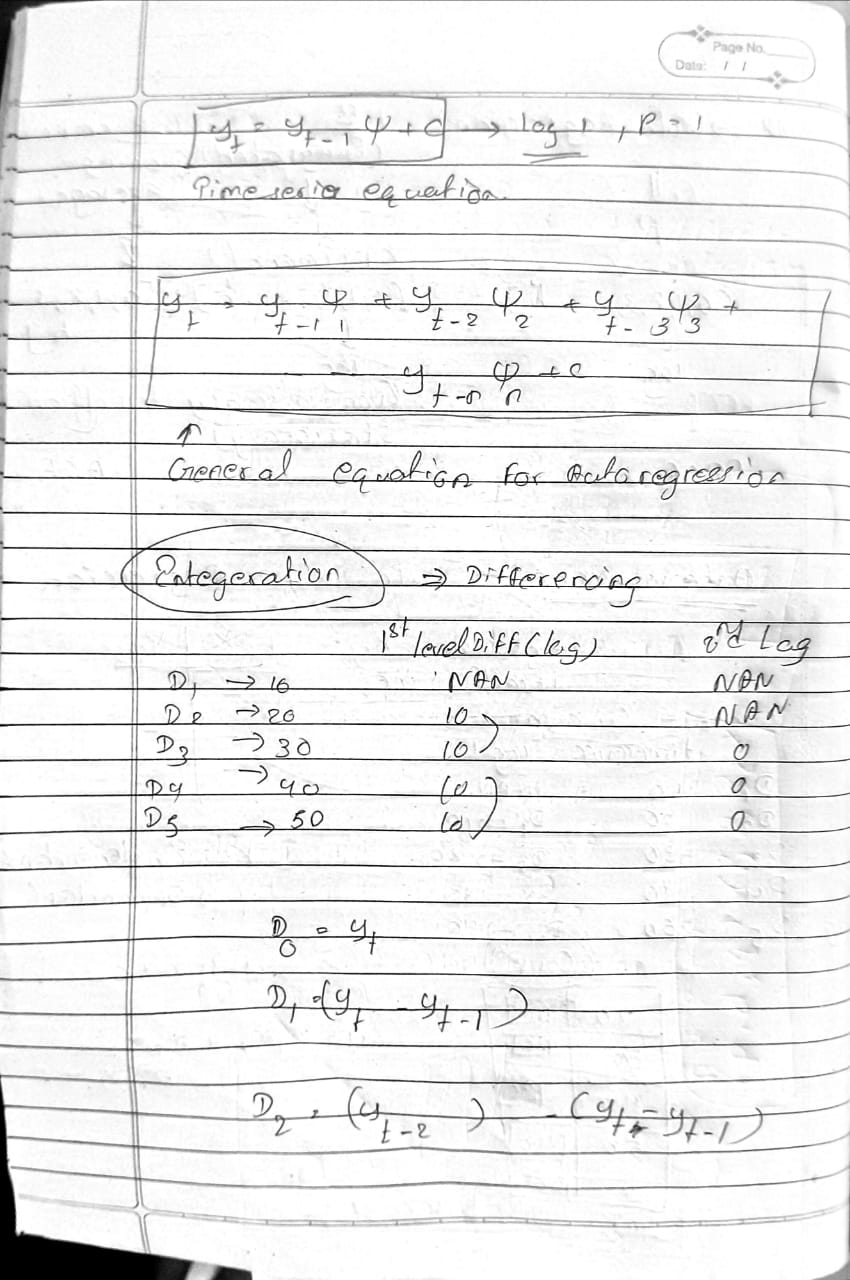 Page No.
Date: / /
y_t = y_{t-1} ψ + C → log 1, P = 1
Pimeseries equation.
y_t = y_{t-1} ψ_1 + y_{t-2} ψ_2 + y_{t-3} ψ_3 +
y_{t-n} ψ_n + c
↑
General equation for Autoregression
Entegeration ⇒ Differencing
1st level Diff (lag) 2nd Lag
D_1 → 10 NAN NAN
D_2 → 20 10 NAN
D_3 → 30 10 0
D_4 → 40 10 0
D_5 → 50 10 0
D_0 = y_t
D_1 = (y_t - y_{t-1})
D_2 = (y_{t-2}) - (y_t - y_{t-1})